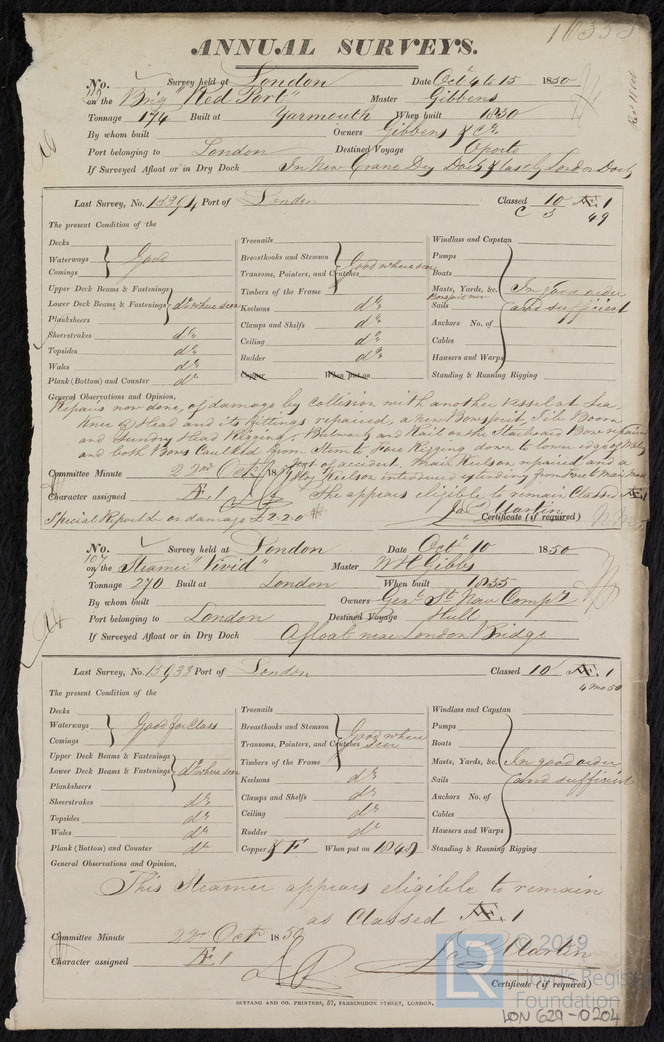 ANNUAL SURVEYS.
No. Survey held at London Date Octr 4 to 15 1850
on the Brig "Red Port" Master Gibbens
Tonnage 174 Built at Yarmouth When built 1830
By whom built Owners Gibbens & Co.
Port belonging to London Destined Voyage Oporto
If Surveyed Afloat or in Dry Dock In New Crane Dry Dock & lastly London Dock
Last Survey, No. 15394 Port of London Classed 10 Æ 1
C 5 49
The present Condition of the
Decks
Waterways } Good
Comings
Upper Deck Beams & Fastenings
Lower Deck Beams & Fastenings } do where seen
Planksheers
Sheerstrakes do
Topsides do
Wales do
Plank (Bottom) and Counter do
Treenails
Breasthooks and Stemson
Transoms, Pointers, and Crutches } Good where seen
Timbers of the Frame
Keelsons do
Clamps and Shelfs do
Ceiling do
Rudder do
Copper When put on
Windlass and Capstan
Pumps
Boats
Masts, Yards, &c. In good order
Bowsprit new
Sails and sufficient
Anchors No. of
Cables
Hawsers and Warps
Standing & Running Rigging
General Observations and Opinion,
Repairs now done, of damage by collision with another vessel at sea
Knee of Head and its fittings repaired, a new Bowsprit, Jib Boom
and sundry Head Rigging. Bulwark and Rail on the Starboard Bow repaired
and both Bows Caulked from Stem to Fore Rigging down to lower edge of Wales
of accident. Main Keelson repaired and a
Keelson introduced extending from Fore to Main Mast
Committee Minute 22nd Octr 1850
Character assigned Æ 1 She appears eligible to remain Classed Æ 1
Jas Martin
Special Report on damage £2.2.0 Certificate (if required)
No. Survey held at London Date Octr 10 1850
107
on the Steamer "Vivid" Master W H Gibbs
Tonnage 270 Built at London When built 1835
By whom built Owners Genl St Nav Compy
Port belonging to London Destined Voyage Hull
If Surveyed Afloat or in Dry Dock Afloat near London Bridge
Last Survey, No. 15933 Port of London Classed 10 Æ 1
4 mo 50
The present Condition of the
Decks
Waterways } Good for Class
Comings
Upper Deck Beams & Fastenings
Lower Deck Beams & Fastenings } do where seen
Planksheers
Sheerstrakes do
Topsides do
Wales do
Plank (Bottom) and Counter do
Treenails
Breasthooks and Stemson
Transoms, Pointers, and Crutches } Good where seen
Timbers of the Frame
Keelsons do
Clamps and Shelfs do
Ceiling do
Rudder do
Copper & F When put on 1849
Windlass and Capstan
Pumps
Boats
Masts, Yards, &c. In good order
Sails and sufficient
Anchors No. of
Cables
Hawsers and Warps
Standing & Running Rigging
General Observations and Opinion,
This Steamer appears eligible to remain
as Classed Æ 1
Committee Minute 22nd Octr 1850
Character assigned Æ 1
Jas Martin
Certificate (if required)
SEYFANG AND CO. PRINTERS, 57, FARRINGDON STREET, LONDON.
© 2019
Lloyd's Register
Foundation
LON 629-0204